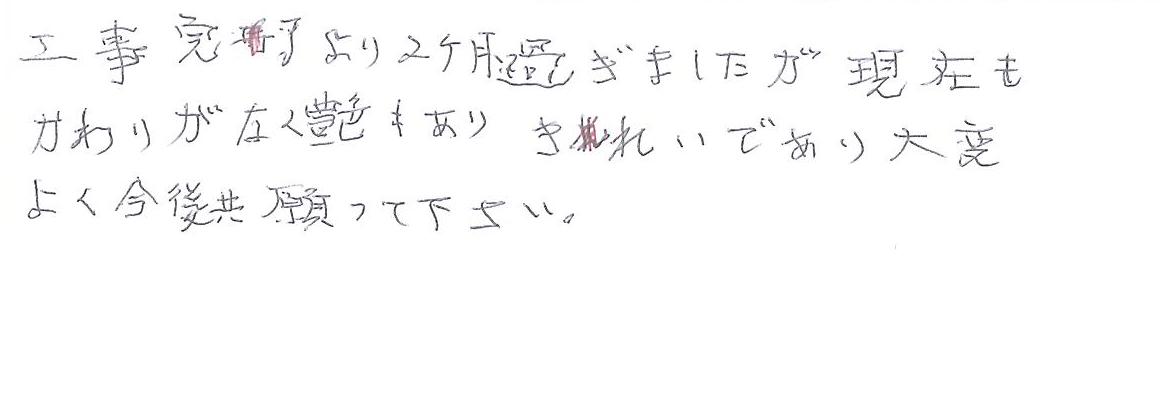 工事完了より2ケ月過ぎましたが現在も
かわりがなく艶もあり きれいであり大変
よく今後共願って下さい。